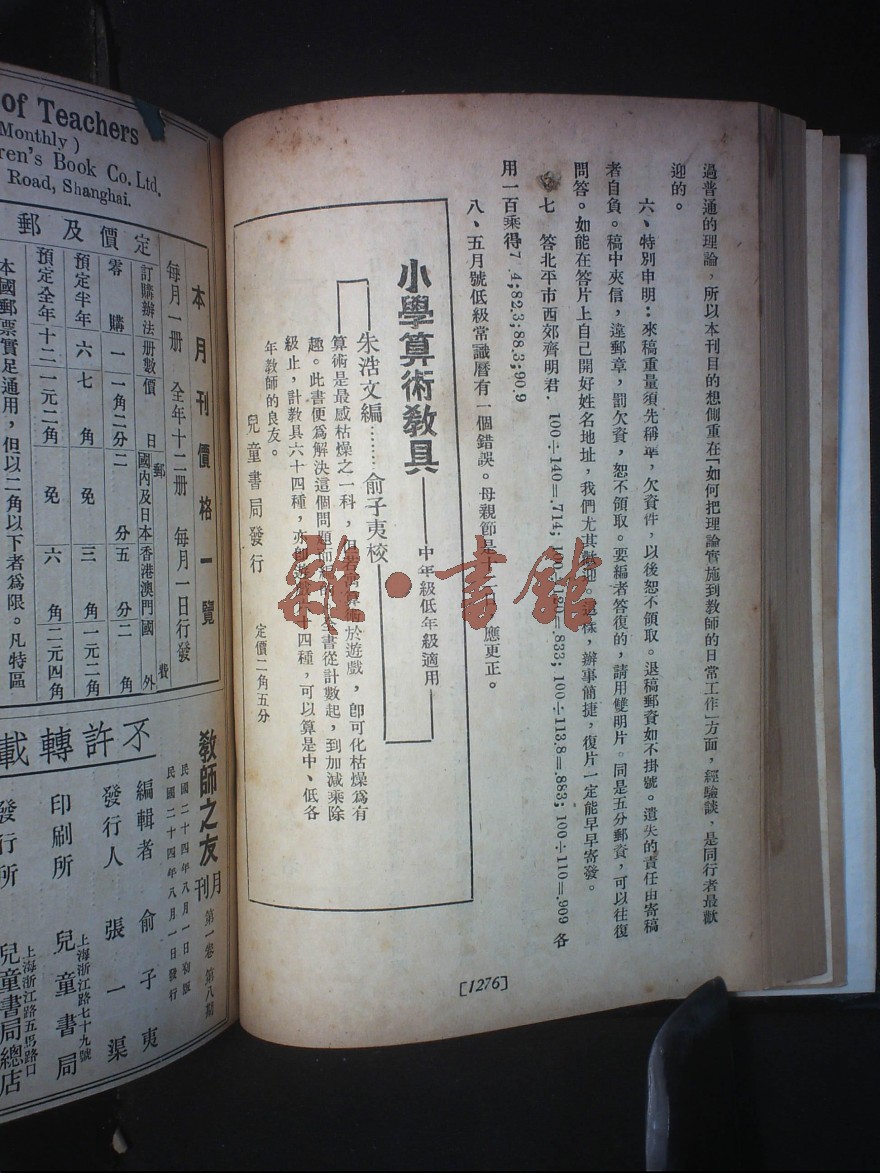 過普通的理論，所以本刊目的想側重在「如何把理論實施到教師的日常工作」方面，經驗談，是同行者最歡
迎的。
六、特別申明：來稿重量須先稱準，欠資件，以後恕不領取。退稿郵資如不掛號。遺失的責任由寄稿
者自負。稿中夾信，違郵章，罰欠資，恕不領取。要編者答復的，請用雙明片。同是五分郵資，可以往復
問答。如能在答片上自己開好姓名地址，我們尤其歡迎。這樣，辦事簡捷，復片一定能早早寄發。
七 答北平市西郊齊明君．100÷140=.714; 100÷ =.833; 100÷113.8=.883; 100÷110=.909 各
用一百乘得7 .4;82.3;88.3;90.9
八、五月號低級常識曆有一個錯誤。母親節是 應更正。
小學算術教具——中年級低年級適用
朱浩文編……俞子夷校
算術是最感枯燥之一科， 算術於遊戲，卽可化枯燥爲有
趣。此書便爲解決這個問題而 全書從計數起，到加減乘除
級止，計教具六十四種， 十四種，可以算是中、低各
年教師的良友。
兒童書局發行 定價二角五分
[1276]
of Teachers
Monthly)
ren's Book Co. Ltd.
Road, Shanghai.
本月刊價格一覽
每月一册 全年十二册 每月一日行發
定價及郵
訂購辦法 册數 價目 郵費
國內及日本 香港澳門 國外
零購 一 一角二分 二分 五分 二角
預定半年 六 七角 免 三角 一元二角
預定全年 十二 一元二角 免 六角 二元四角
本國郵票實足通用，但以二角以下者爲限。凡特區
不許轉載
教師之友月刊 第一卷 第八期
民國二十四年八月一日初版
民國二十四年八月一日發行
編輯者 俞子夷
發行人 張一渠
印刷所 兒童書局
上海浙江路七十九號
發行所 兒童書局總店
上海浙江路五馬路口
雜·書館